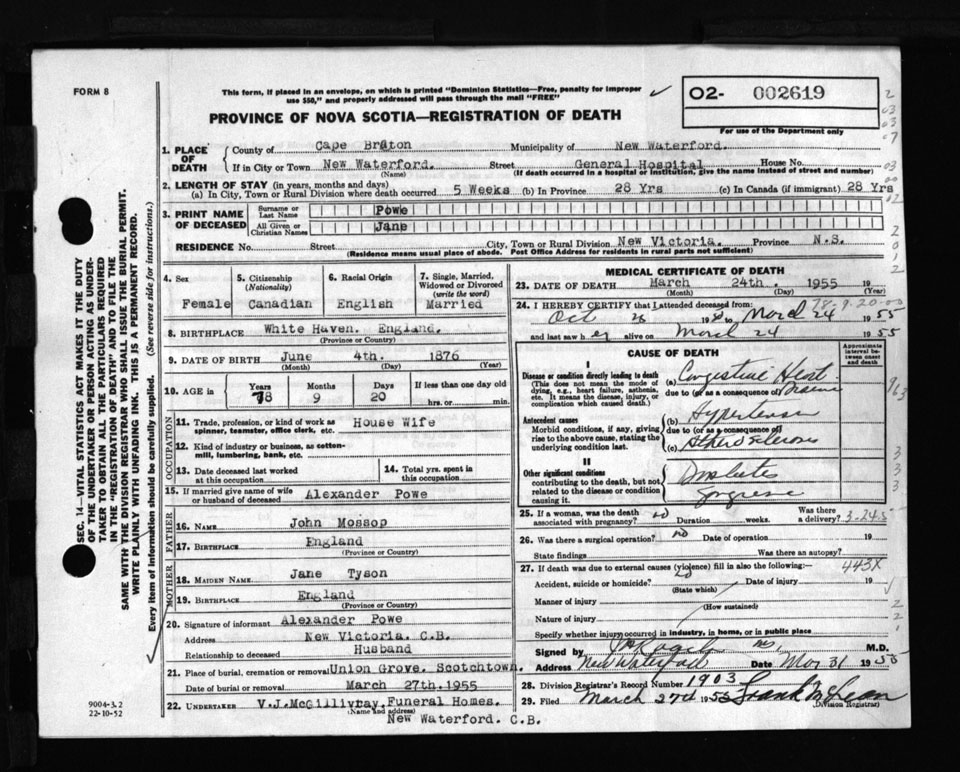 FORM 8
This form, if placed in an envelope, on which is printed "Dominion Statistics—Free, penalty for improper
use $50," and properly addressed will pass through the mail "FREE"
PROVINCE OF NOVA SCOTIA—REGISTRATION OF DEATH
O2- 002619
For use of the Department only
1. PLACE OF DEATH
County of Cape Breton Municipality of New Waterford.
If in City or Town New Waterford. Street General Hospital House No.
(Name) (If death occurred in a hospital or institution, give the name instead of street and number)
2. LENGTH OF STAY (in years, months and days)
(a) In City, Town or Rural Division where death occurred 5 Weeks (b) In Province 28 Yrs (c) In Canada (if immigrant) 28 Yrs
3. PRINT NAME OF DECEASED
Surname or Last Name Powe
All Given or Christian Names Jane
RESIDENCE No. Street City, Town or Rural Division New Victoria. Province N.S.
(Residence means usual place of abode. Post Office Address for residents in rural parts not sufficient)
4. Sex Female
5. Citizenship (Nationality) Canadian
6. Racial Origin English
7. Single, Married, Widowed or Divorced (write the word) Married
8. BIRTHPLACE White Haven. England.
(Province or Country)
9. DATE OF BIRTH June 4th. 1876
(Month) (Day) (Year)
10. AGE in Years 78 Months 9 Days 20 If less than one day old hrs. or min.
OCCUPATION
11. Trade, profession, or kind of work as spinner, teamster, office clerk, etc. House Wife
12. Kind of industry or business, as cotton-mill, lumbering, bank, etc.
13. Date deceased last worked at this occupation
14. Total yrs. spent in this occupation
15. If married give name of wife or husband of deceased Alexander Powe
FATHER
16. NAME John Mossop
17. BIRTHPLACE England
(Province or Country)
MOTHER
18. MAIDEN NAME Jane Tyson
19. BIRTHPLACE England
(Province or Country)
20. Signature of informant Alexander Powe
Address New Victoria. C.B.
Relationship to deceased Husband
21. Place of burial, cremation or removal Union Grove. Scotchtown.
Date of burial or removal March 27th.1955
22. UNDERTAKER V.J.McGillivray.Funeral Homes.
(Name and address)
New Waterford. C.B.
MEDICAL CERTIFICATE OF DEATH
23. DATE OF DEATH March 24th. 1955 19
(Month) (Day) (Year)
78-9-20-00
24. I HEREBY CERTIFY that I attended deceased from:
Oct 26 19 to March 24 1955
and last saw her alive on March 24 1955
CAUSE OF DEATH
Approximate interval between onset and death
Disease or condition directly leading to death
(This does not mean the mode of dying, e.g., heart failure, asthenia, etc. It means the disease, injury, or complication which caused death.)
(a) Congestive Heart Disease
due to (or as a consequence of)
Antecedent causes
Morbid conditions, if any, giving rise to the above cause, stating the underlying condition last.
(b) Hypertension
due to (or as a consequence of)
(c) Atherosclerosis
II
Other significant conditions
contributing to the death, but not related to the disease or condition causing it.
Diabetes
Gangrene
25. If a woman, was the death associated with pregnancy? no Duration weeks. Was there a delivery?
3-24-5
26. Was there a surgical operation? no Date of operation 19
State findings Was there an autopsy?
27. If death was due to external causes (violence) fill in also the following:— 443X
Accident, suicide or homicide? no Date of injury 19
(State which)
Manner of injury
(How sustained)
Nature of injury
Specify whether injury occurred in industry, in home, or in public place
Signed by M.D.
Address New Waterford Date Mar 31 1955
28. Division Registrar's Record Number 1903
29. Filed March 27th 1955 Frank McLean
(Division Registrar)
SEC. 14—VITAL STATISTICS ACT MAKES IT THE DUTY
OF THE UNDERTAKER OR PERSON ACTING AS UNDER-
TAKER TO OBTAIN ALL THE PARTICULARS REQUIRED
IN THE "REGISTRATION OF DEATH" AND TO FILE THE
SAME WITH THE DIVISION REGISTRAR WHO SHALL ISSUE THE BURIAL PERMIT.
WRITE PLAINLY WITH UNFADING INK. THIS IS A PERMANENT RECORD.
Every item of information should be carefully supplied. (See reverse side for instructions.)
9004-3.2
22-10-52